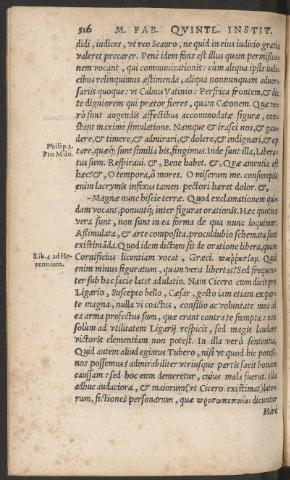 516 M. FAB. QVINTL. INSTIT.
didi, iudices, vt reo Scauro, ne quid in eius iudicio gratia
valeret precarer. Penè idem fons est illius quam permissio
nem vocant, qui communicationis: cùm aliqua ipsis iudi
cibus relinquimus æstimanda, aliqua nonnunquam aduer
sariis quoque: vt Caluus Vatinio: Perfrica frontem, & dic
te digniorem qui prætor fieres, quàm Catonem. Quæ ve
rò sunt augendis affectibus accommodatæ figuræ, con
stant maximè simulatione. Namque & irasci nos, & gau
dere, & timere, & admirari, & dolere, & indignari, & op
tare, quæque sunt similia his, fingimus. Inde sunt illa, Libera-
Philip. 2.
tus sum. Respiraui. &, Bene habet. &, Quæ amentia est
Pro Milo.
hæc? &, O tempora, ô mores. O miserum me. consumptis
enim lacrymis infixus tamen pectori hæret dolor. &,
-Magnæ nunc hiscite terræ. Quod exclamationem qui
dam vocant, ponuntque inter figuras orationis. Hæc quoties
vera sunt, non sunt in ea forma de qua nunc loquimur.
Assimulata, & arte composita, proculdubio schemata sunt
existimāda. Quod idem dictum sit de oratione libera, quam
Lib. 4 ad He-
rennium.
Cornificius licentiam vocat, Græci παῤῥησίαν. Quid
enim minus figuratum, quàm vera libertas? Sed frequen
ter sub hac facie latet adulatio. Nam Cicero cum dicit pro
Ligario, Suscepto bello, Cæsar, gesto iam etiam ex par-
te magna, nulla vi coactus, consilio ac voluntate mea ad
ea arma profectus sum, quæ erant contra te sumpta: non
solùm ad vtilitatem Ligarij respicit, sed magis laudare
victoris clementiam non potest. In illa verò sententia,
Quid autem aliud egimus Tubero, nisi vt quod hic potest,
nos possemus? admirabiliter vtriusque partis facit bonam
caussam: sed hoc eum demeretur, cuius mala fuerat. Illa
adhuc audaciora, & maiorum (vt Cicero existimat) late-
rum, fictiones personarum, quæ προσωποποιίαι dicuntur
Miré